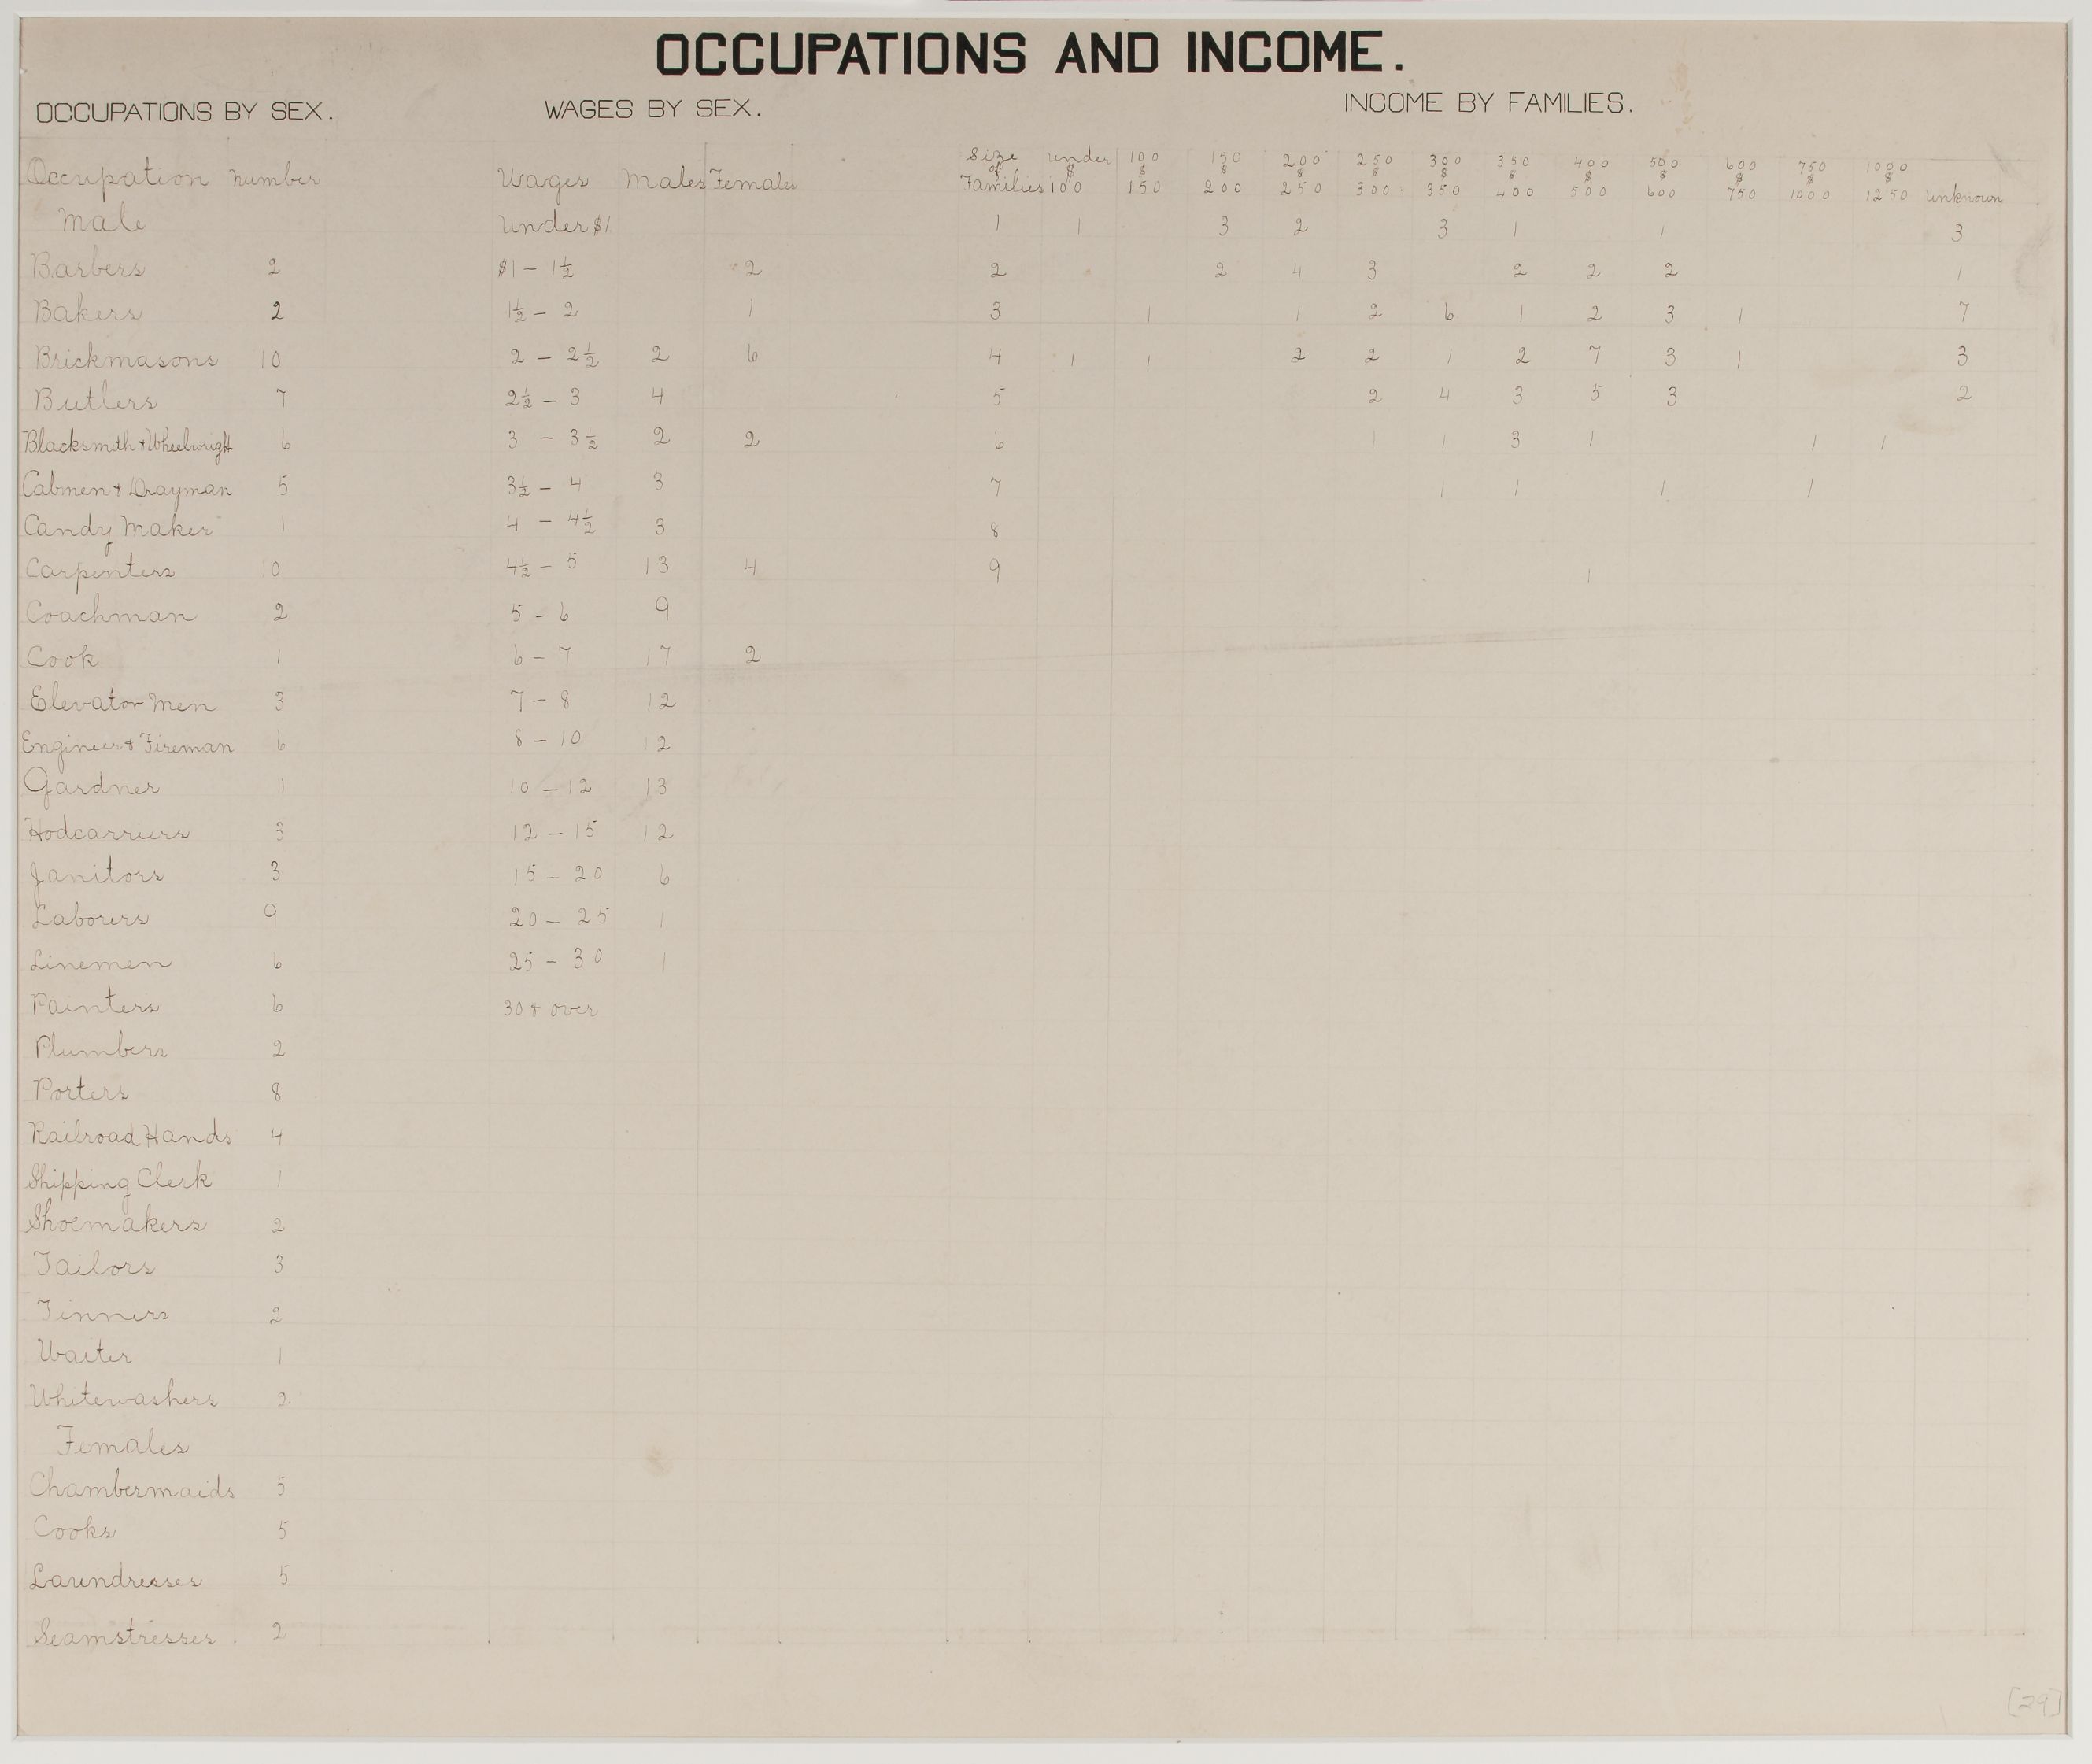 OCCUPATIONS AND INCOME.
OCCUPATIONS BY SEX. WAGES BY SEX. INCOME BY FAMILIES.
Occupation Number
Male
Barbers 2
Bakers 2
Brickmasons 10
Butlers 7
Blacksmith & Wheelwright 6
Cabmen & Drayman 5
Candy Maker 1
Carpenters 10
Coachman 2
Cook 1
Elevator Men 3
Engineer & Fireman 6
Gardner 1
Hodcarriers 3
Janitors 3
Laborers 9
Linemen 6
Painters 6
Plumbers 2
Porters 8
Railroad Hands 4
Shipping Clerk 1
Shoemakers 2
Tailors 3
Tinners 2
Waiter 1
Whitewashers 2
Females
Chambermaids 5
Cooks 5
Laundresses 5
Seamstresses. 2
Wages Males Females
Under $1
$1 – 1½ 2
1½ – 2 1
2 – 2½ 2 6
2½ – 3 4
3 – 3½ 2 2
3½ – 4 3
4 – 4½ 3
4½ – 5 13 4
5 – 6 9
6 – 7 17 2
7 – 8 12
8 – 10 12
10 – 12 13
12 – 15 12
15 – 20 6
20 – 25 1
25 – 30 1
30 & over
Size under 100 150 200 250 300 350 400 500 600 750 1000
of $ $ $ $ $ $ $ $ $ $ $ $
Families 100 150 200 250 300 350 400 500 600 750 1000 1250 unknown
1 1 3 2 3 1 1 3
2 2 4 3 2 2 2 1
3 1 1 2 6 1 2 3 1 7
4 1 1 2 2 1 2 7 3 1 3
5 2 4 3 5 3 2
6 1 1 3 1 1 1
7 1 1 1 1
8
9 1
[29]